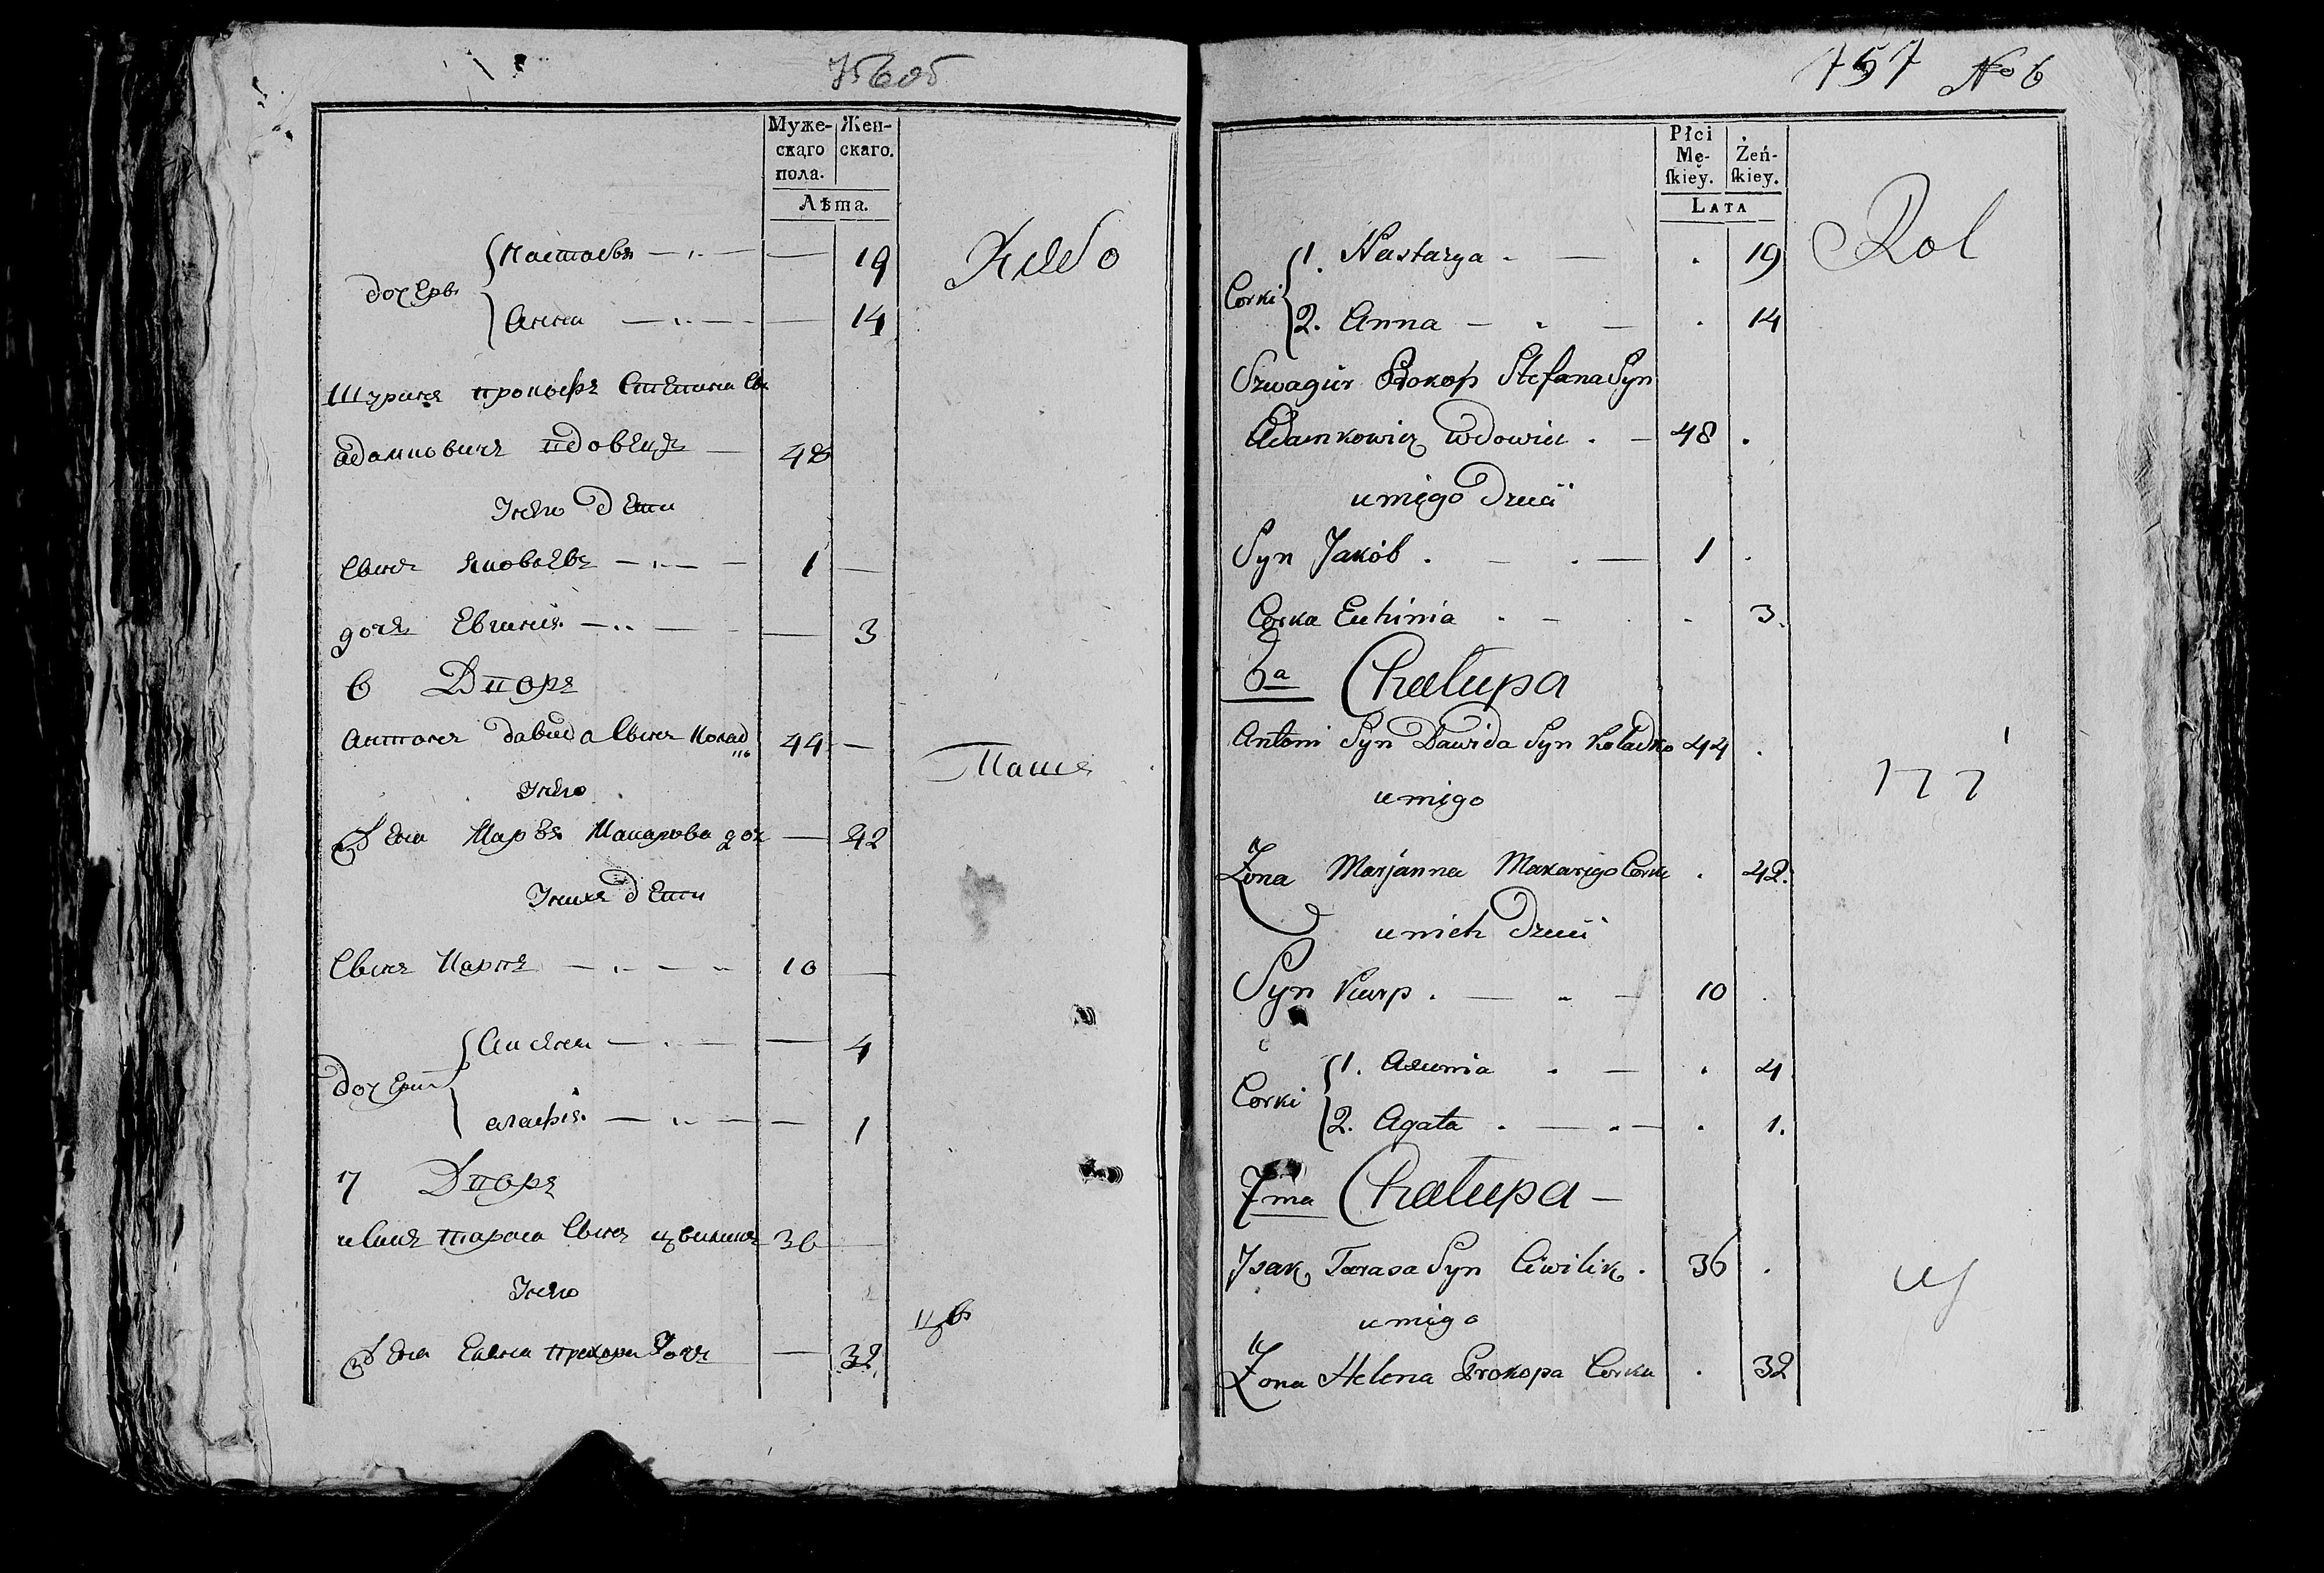 756 об
Муже-
скаго
пола.
Жен-
скаго.
Лѣта.
дочерь
Настасья — — 19
Анна — — 14
Шуринъ прокофъ Степана Сы
адамковичъ вдовецъ — 48
Унего дети
Сынъ Яковъ — 1 —
дочь Евгинія — — 3
6 Дворъ
антонъ давида Сынъ Колад 44 —
Унего
Жена Марья Макарова доч — 42
Унихъ дети
Сынъ Карпъ — 10 —
дочери
— 4
агафія — — 1
7 Дворъ
тараса Сынъ цвиликъ 36 —
Унего
Жена Елена дочь — 32
цв
757 No 6
Płci
Mę-
ſkiey.
Żeń-
ſkiey.
LATA
Corki
1. Nastazya - — . 19
2. Anna — - — . 14
Szwagier Prokop Stefana Syn
Adamkowicz Wdowiec . — 48 .
u niego Dzieci
Syn Jakób . — . — 1 .
Corka Euhinia . — . - 3.
6a Chałupa
Antoni Syn Dawida Syn Koładko 44 .
u niego
Żona Marjanna Makarego Corka . 42.
u nich Dzieci
Syn Karp . — „ — 10 .
Corki
1. Axunia . — . 4
2. Agata . — „ — . 1.
7ma Chałupa —
Isak Tarasa Syn Ciwilik . 36 .
u niego
Żona Helena Prokopa Corka . 32